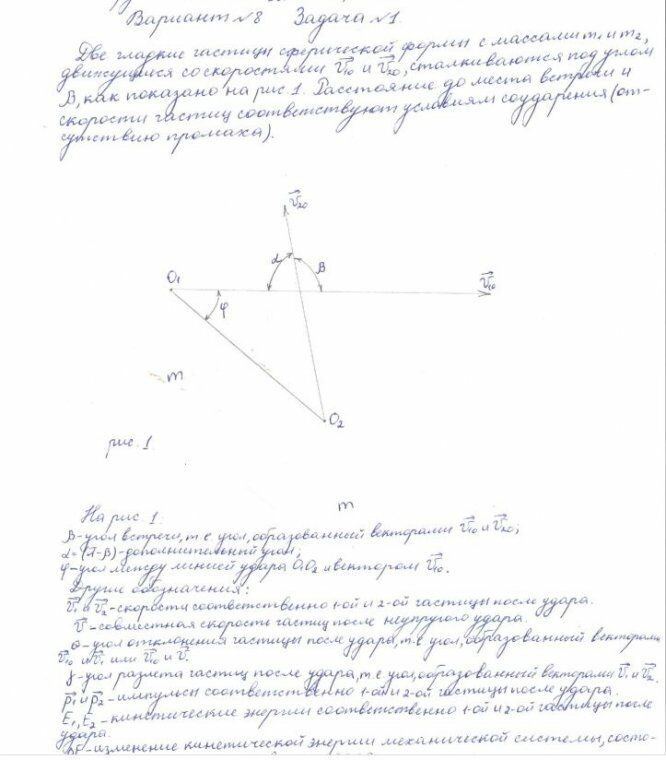 Вариант №8 Задача №1.
Две гладкие частицы сферической формы с массами m₁ и m₂,
движущиеся со скоростями v⃗₁₀ и v⃗₂₀, сталкиваются под углом
β, как показано на рис 1. Расстояние до места встречи и
скорости частиц соответствуют условиям соударения (от-
сутствию промаха).
v⃗₂₀
α β
O₁ v⃗₁₀
φ
m
O₂
рис. 1.
m
На рис. 1:
β-угол встречи, т.е угол, образованный векторами v⃗₁₀ и v⃗₂₀;
α=(π-β)-дополнительный угол;
φ-угол между линией удара O₁O₂ и вектором v⃗₁₀.
Другие обозначения:
v⃗₁ и v⃗₂-скорости соответственно 1-ой и 2-ой частицы после удара.
v⃗-совместная скорость частиц после неупругого удара.
θ-угол отклонения частицы после удара, т-е угол, образованный векторами
v⃗₁₀ и v⃗₁ или v⃗₁₀ и v⃗.
γ-угол разлета частиц после удара, т е угол, образованный векторами v⃗₁ и v⃗₂.
p⃗₁ и p⃗₂-импульсы соответственно 1-ой и 2-ой частицы после удара.
E₁, E₂-кинетические энергии соответственно 1-ой и 2-ой частицы после
удара.
-изменение кинетической энергии механической системы, состо-